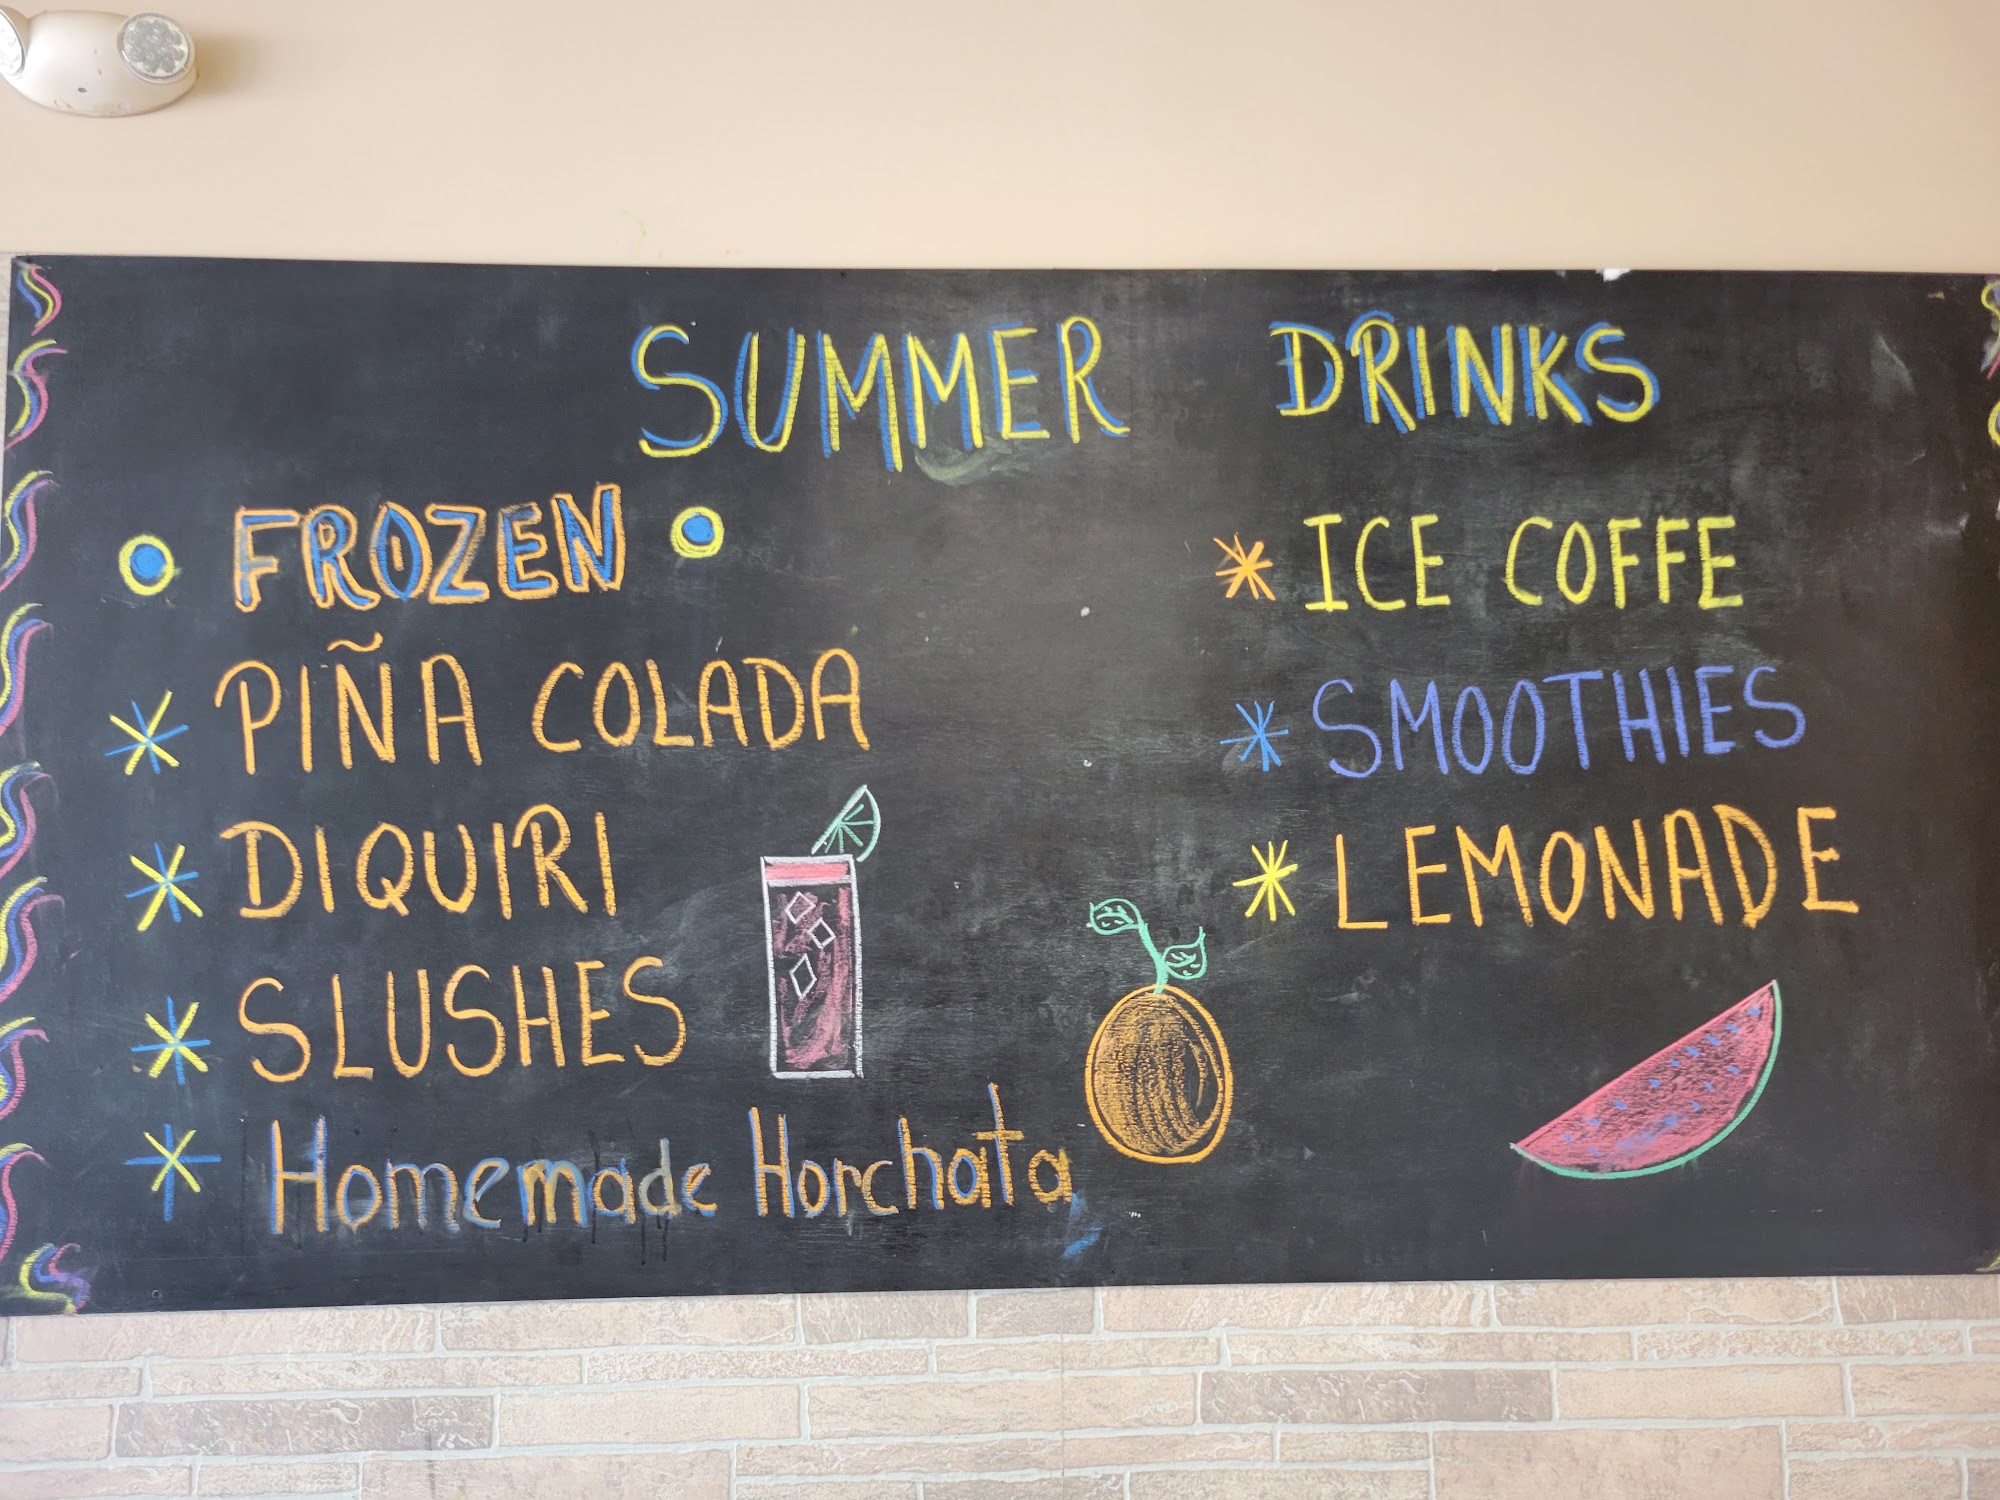 SUMMER DRINKS
FROZEN
PIÑA COLADA
DIQUIRI
SLUSHES
Homemade Horchata
ICE COFFE
SMOOTHIES
LEMONADE